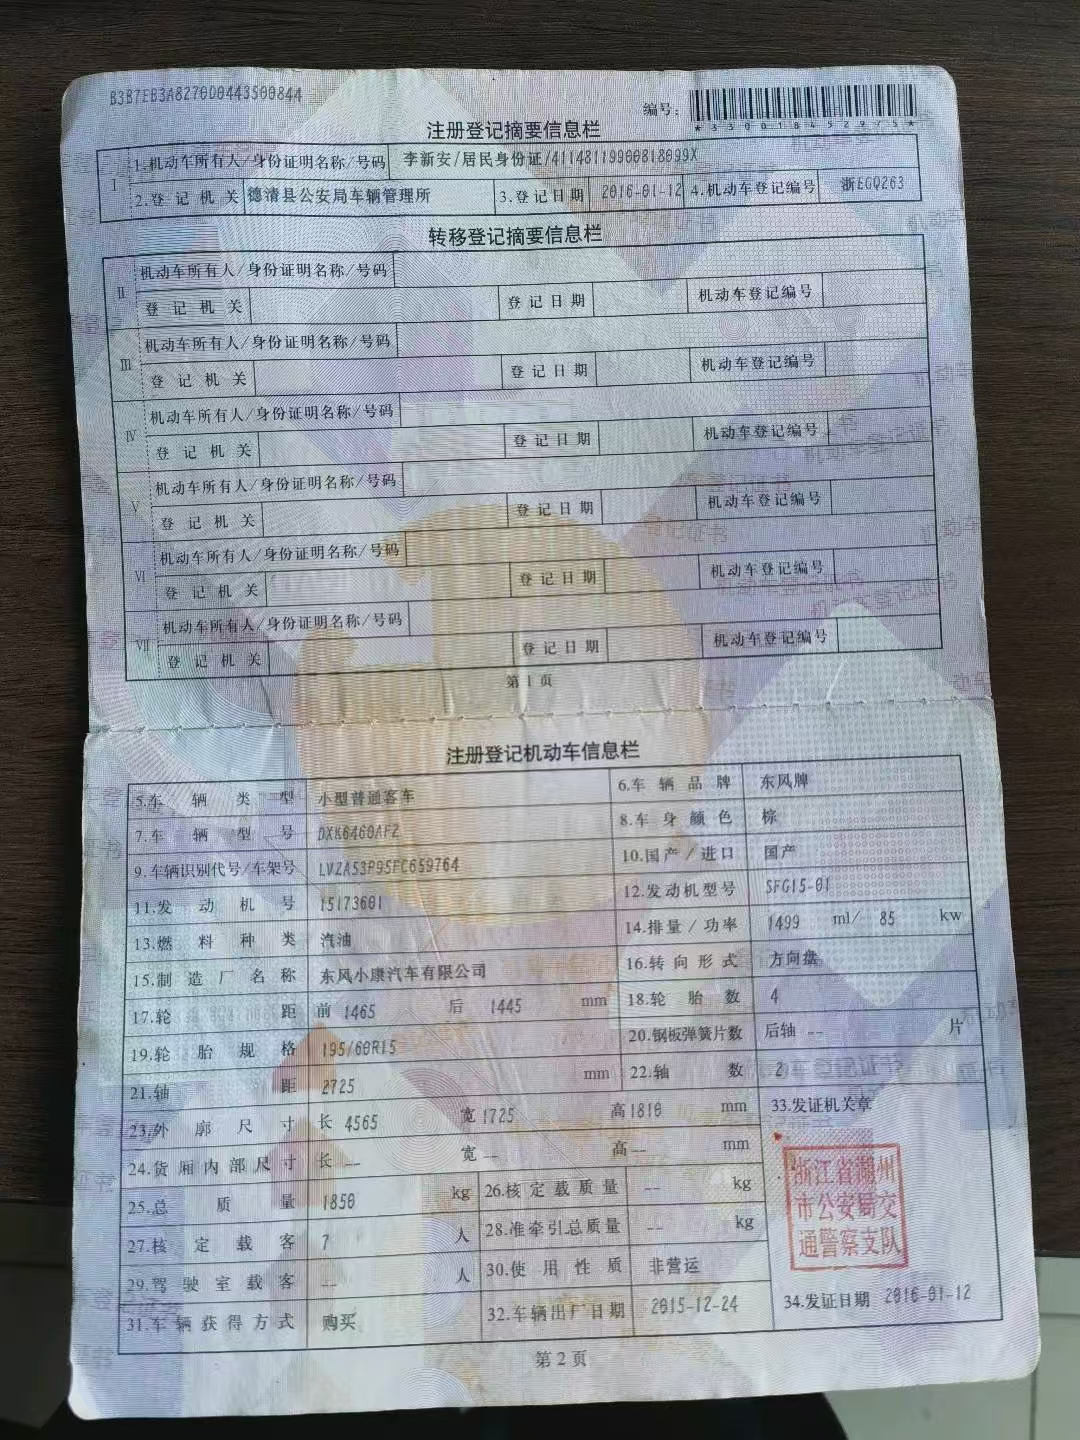 B3B7EB3A827000443500844
编号:
*330018452975*
注册登记摘要信息栏
I 1.机动车所有人/身份证明名称/号码 李新安/居民身份证/41148119900818099X
2.登记机关 德清县公安局车辆管理所 3.登记日期 2016-01-12 4.机动车登记编号 浙EGQ263
转移登记摘要信息栏
II 机动车所有人/身份证明名称/号码
登记机关 登记日期 机动车登记编号
III 机动车所有人/身份证明名称/号码
登记机关 登记日期 机动车登记编号
IV 机动车所有人/身份证明名称/号码
登记机关 登记日期 机动车登记编号
V 机动车所有人/身份证明名称/号码
登记机关 登记日期 机动车登记编号
VI 机动车所有人/身份证明名称/号码
登记机关 登记日期 机动车登记编号
VII 机动车所有人/身份证明名称/号码
登记机关 登记日期 机动车登记编号
第1页
注册登记机动车信息栏
5.车辆类型 小型普通客车 6.车辆品牌 东风牌
7.车辆型号 DXK6460AF2 8.车身颜色 棕
9.车辆识别代号/车架号 LVZA53P95FC659764 10.国产/进口 国产
11.发动机号 15173601 12.发动机型号 SFG15-01
13.燃料种类 汽油 14.排量/功率 1499 ml/ 85 kw
15.制造厂名称 东风小康汽车有限公司 16.转向形式 方向盘
17.轮距 前 1465 后 1445 mm 18.轮胎数 4
19.轮胎规格 195/60R15 20.钢板弹簧片数 后轴 -- 片
21.轴距 2725 mm 22.轴数 2
23.外廓尺寸 长 4565 宽 1725 高 1810 mm 33.发证机关章
24.货厢内部尺寸 长 -- 宽 -- 高 -- mm
25.总质量 1850 kg 26.核定载质量 -- kg
27.核定载客 7 人 28.准牵引总质量 -- kg
29.驾驶室载客 -- 人 30.使用性质 非营运
31.车辆获得方式 购买 32.车辆出厂日期 2015-12-24 34.发证日期 2016-01-12
浙江省湖州
市公安局交
通警察支队
第2页